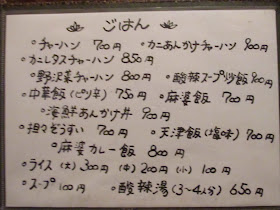 ごはん
・チャーハン 700円 ・カニあんかけチャーハン 900円
・カニレタスチャーハン 850円
・野沢菜チャーハン 800円 ・酸辣スープ炒飯 900円
・中華飯(ピリ辛) 750円 ・麻婆飯 700円
・海鮮あんかけ丼 900円
・担々ぞうすい 700円 ・天津飯(塩味) 700円
・麻婆カレー飯 800円
・ライス(大)300円(中)200円(小)100円
・スープ100円 ・酸辣湯(3〜4人分)650円